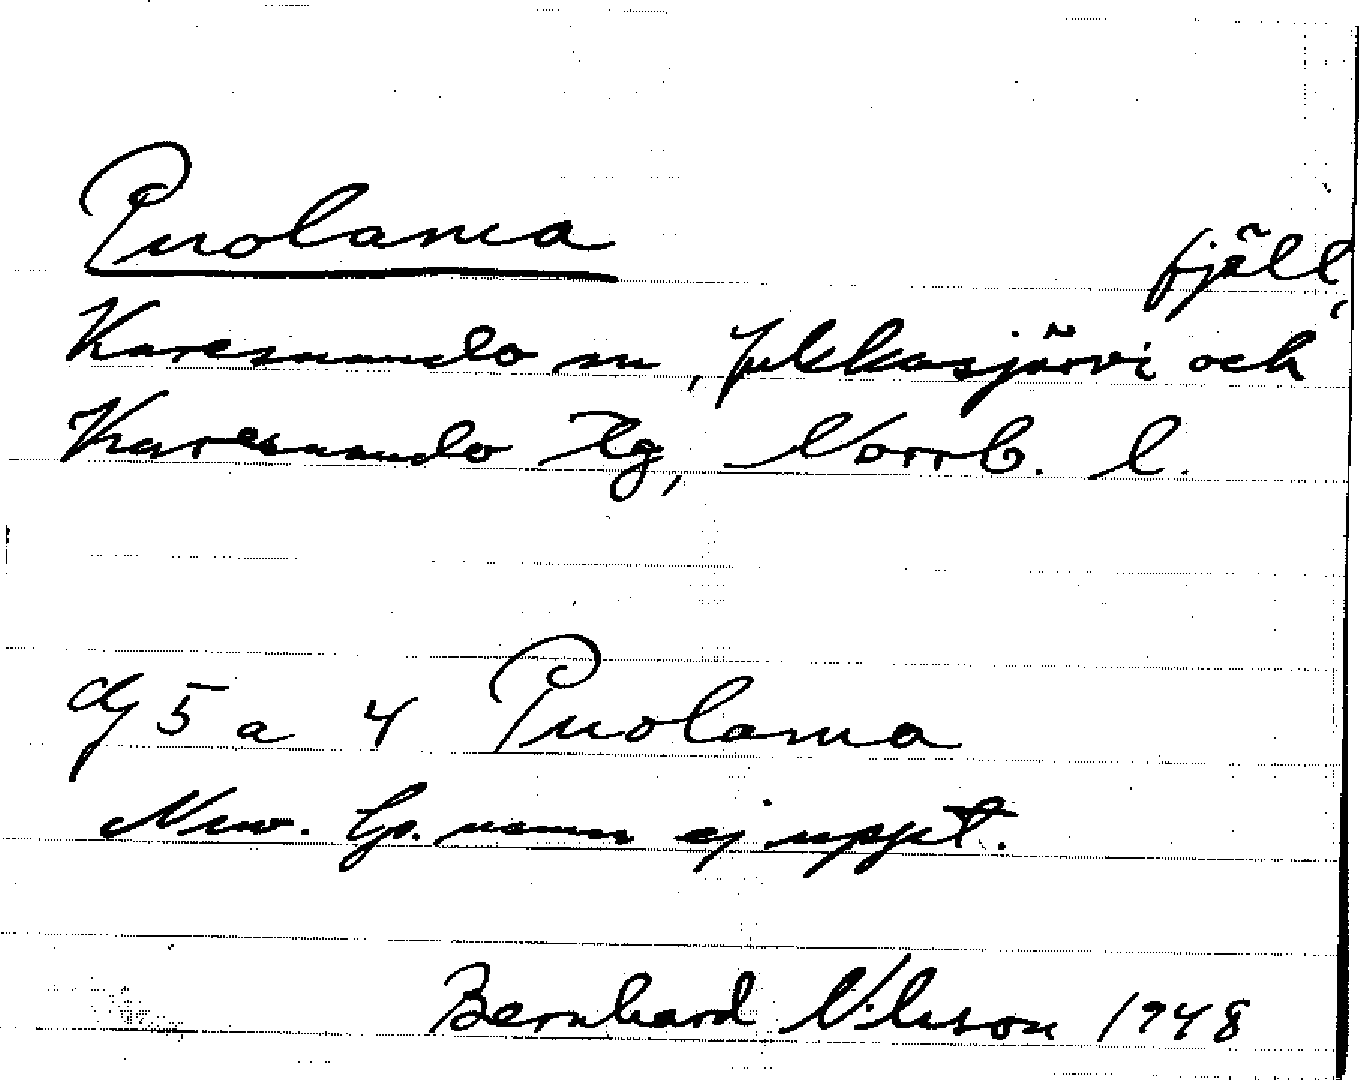 Puolama
fjäll,
Karesuando sn, Jukkasjärvi och
Karesuando tg, Norrb. l.
dj 5 a 4 Puolama
Nuv. lp. namn ej uppt.
Bernhard Nilsson 1948